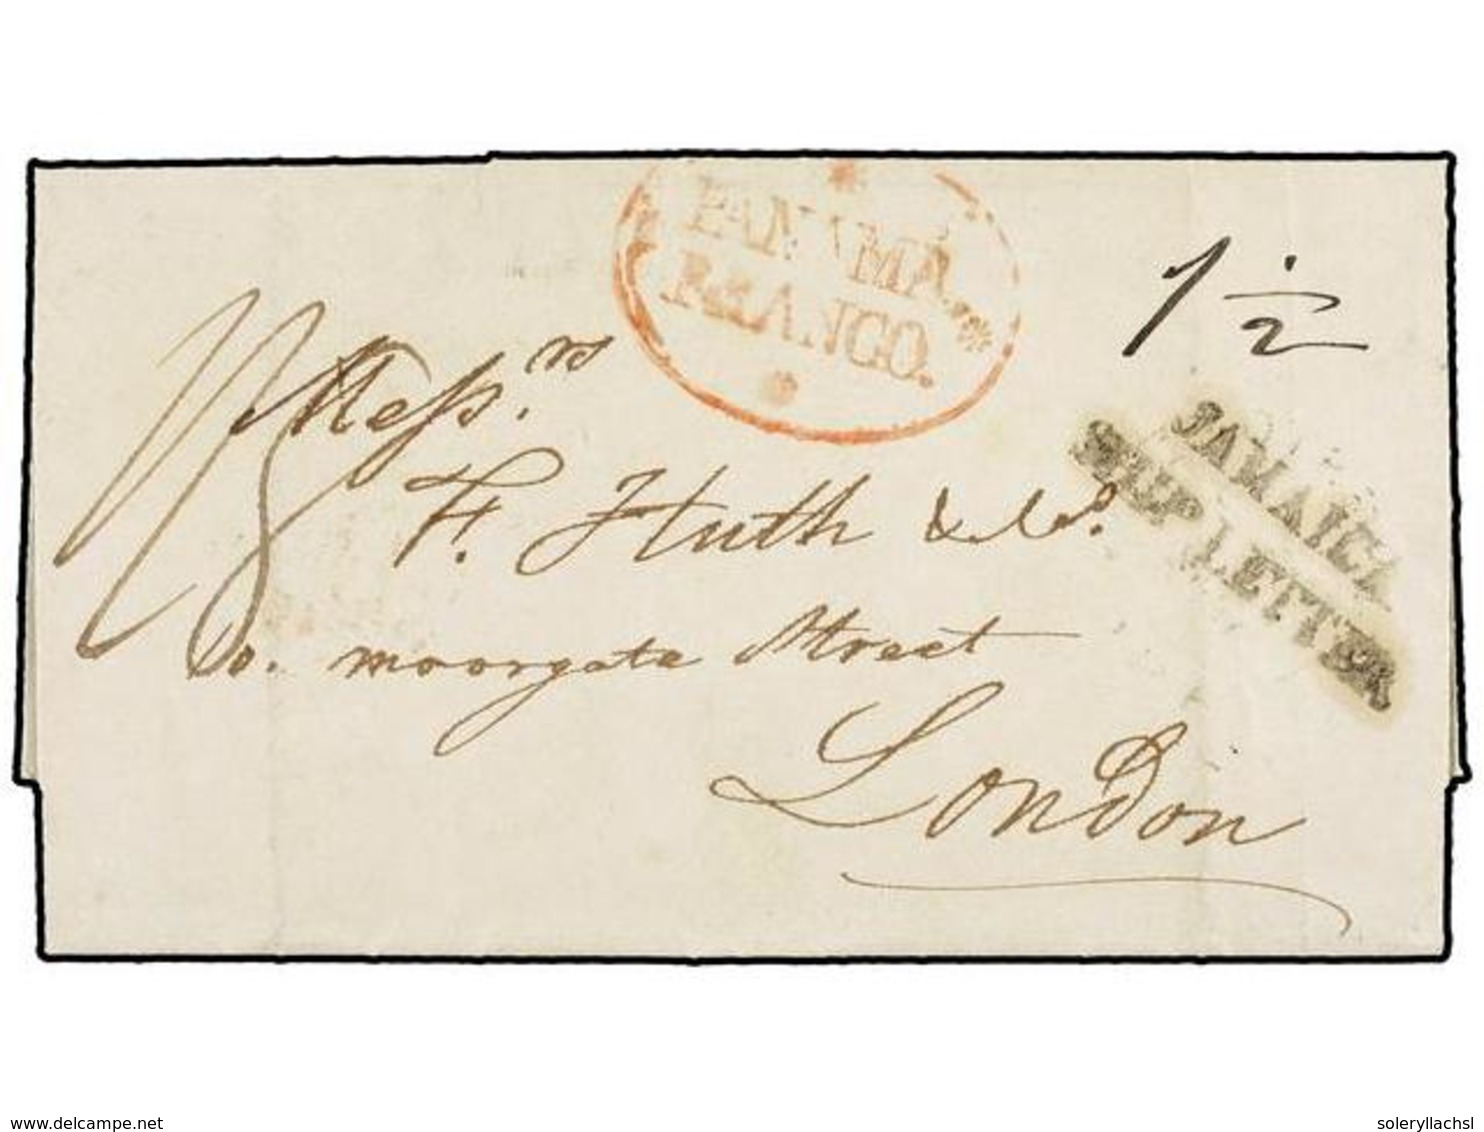 PANAMÁ
FRANCO.
1 1/2
JAMAICA
SHIP LETTER
Mess.rs
F. Huth & Co.
10. Moorgate Street
London
www.delcampe.net
soleryllachsl